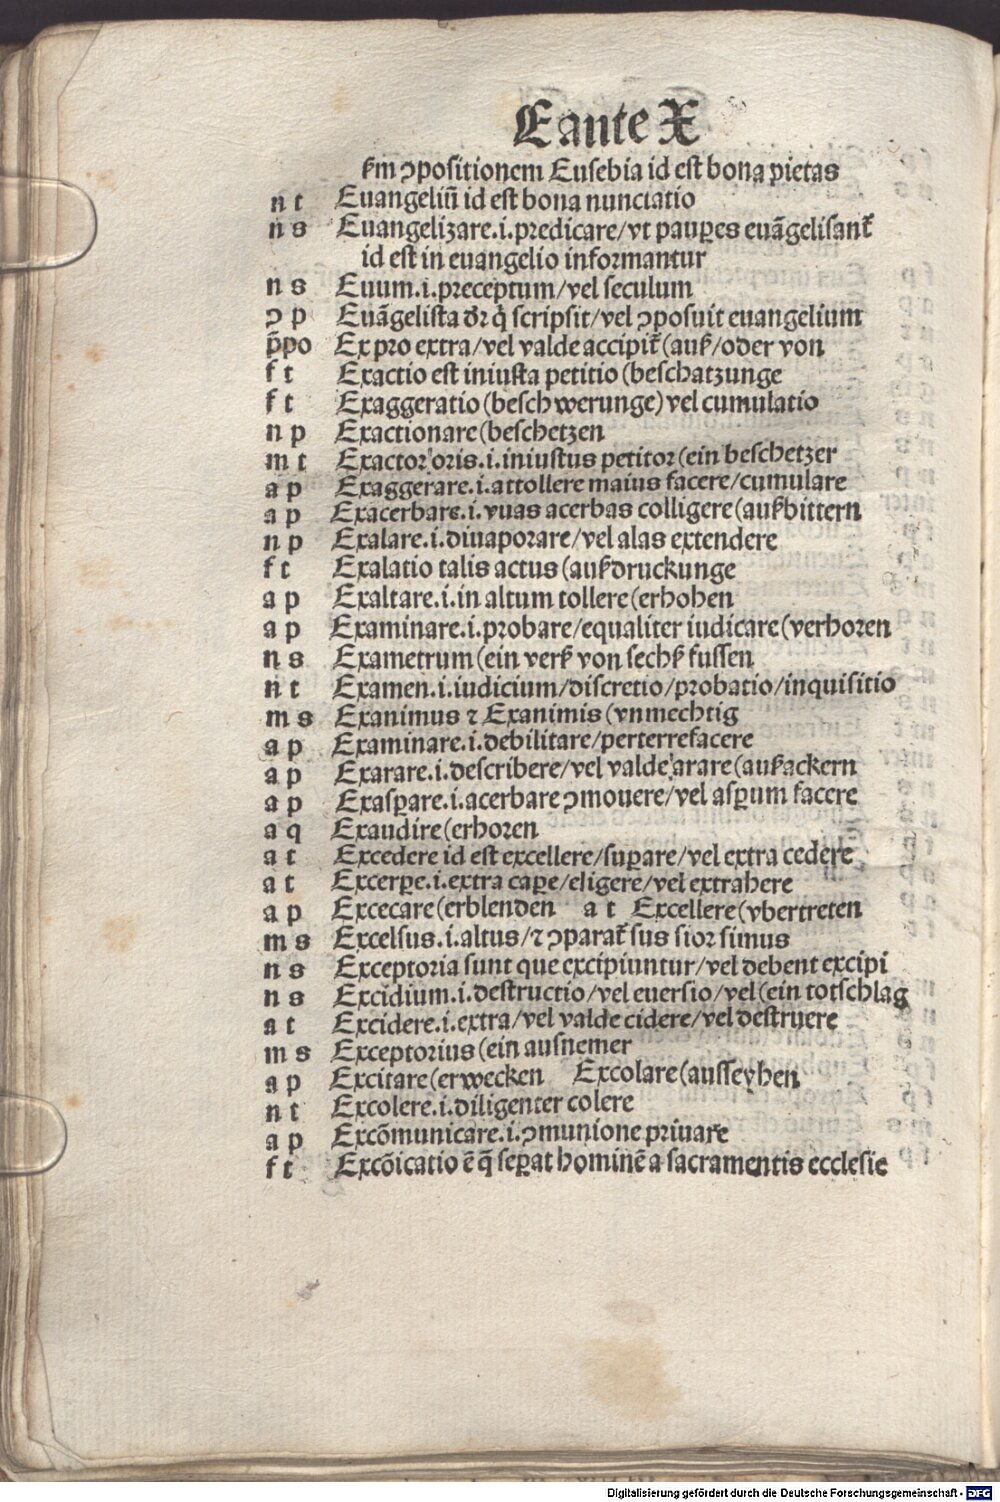 E ante X
ẜm ꝯpositionem Eusebia id est bona pietas
n t Euangeliū id est bona nunciatio
n s Euangelizare.i.predicare/vt pauꝑes euāgelisant᷑
id est in euangelio informantur
n s Euum.i.preceptum/vel seculum
ꝯ p Euāgelista dr̄ q̇ scripsit/vel ꝯposuit euangelium
p̄po Ex pro extra/vel valde accipit᷑(auß/oder von
f t Exactio est iniusta petitio(beschatzunge
f t Exaggeratio(beschwerunge)vel cumulatio
n p Exactionare(beschetzen
m t Exactor oris.i.iniustus petitor(ein beschetzer
a p Exaggerare.i.attollere maius facere/cumulare
a p Exacerbare.i.vuas acerbas colligere(außbittern
n p Exalare.i.diuaporare/vel alas extendere
f t Exalatio talis actus(außdruckunge
a p Exaltare.i.in altum tollere(erhohen
a p Examinare.i.probare/equaliter iudicare(verhoren
n s Exametrum(ein verß von sechß fussen
n t Examen.i.iudicium/discretio/probatio/inquisitio
m s Exanimus ⁊ Exanimis(vnmechtig
a p Examinare.i.debilitare/perterrefacere
a p Exarare.i.describere/vel valde arare(außackern
a p Exasꝑare.i.acerbare ꝯmouere/vel asꝑum facere
a q Exaudire(erhoren
a t Excedere id est excellere/suꝑare/vel extra cedere
a t Excerꝑe.i.extra caꝑe/eligere/vel extrahere
a p Excecare(erblenden a t Excellere(vbertreten
m s Excelsus.i.altus/⁊ ꝯparat᷑ sus sior simus
n s Exceptoria sunt que excipiuntur/vel debent excipi
n s Excidium.i.destructio/vel euersio/vel(ein totschlag
a t Excidere.i.extra/vel valde cidere/vel destruere
m s Exceptorius(ein ausnemer
a p Excitare(erwecken Excolare(ausseyhen
n t Excolere.i.diligenter colere
a p Excōmunicare.i.ꝯmunione priuare
f t Excōicatio ē q̄ seꝑat hominē a sacramentis ecclesie
Digitalisierung gefördert durch die Deutsche Forschungsgemeinschaft - DFG